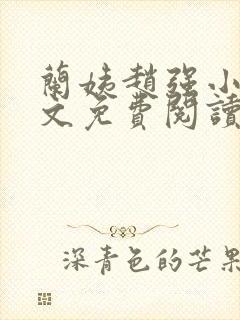 蘭姨趙强小
文免費閱讀
深青色的芒果